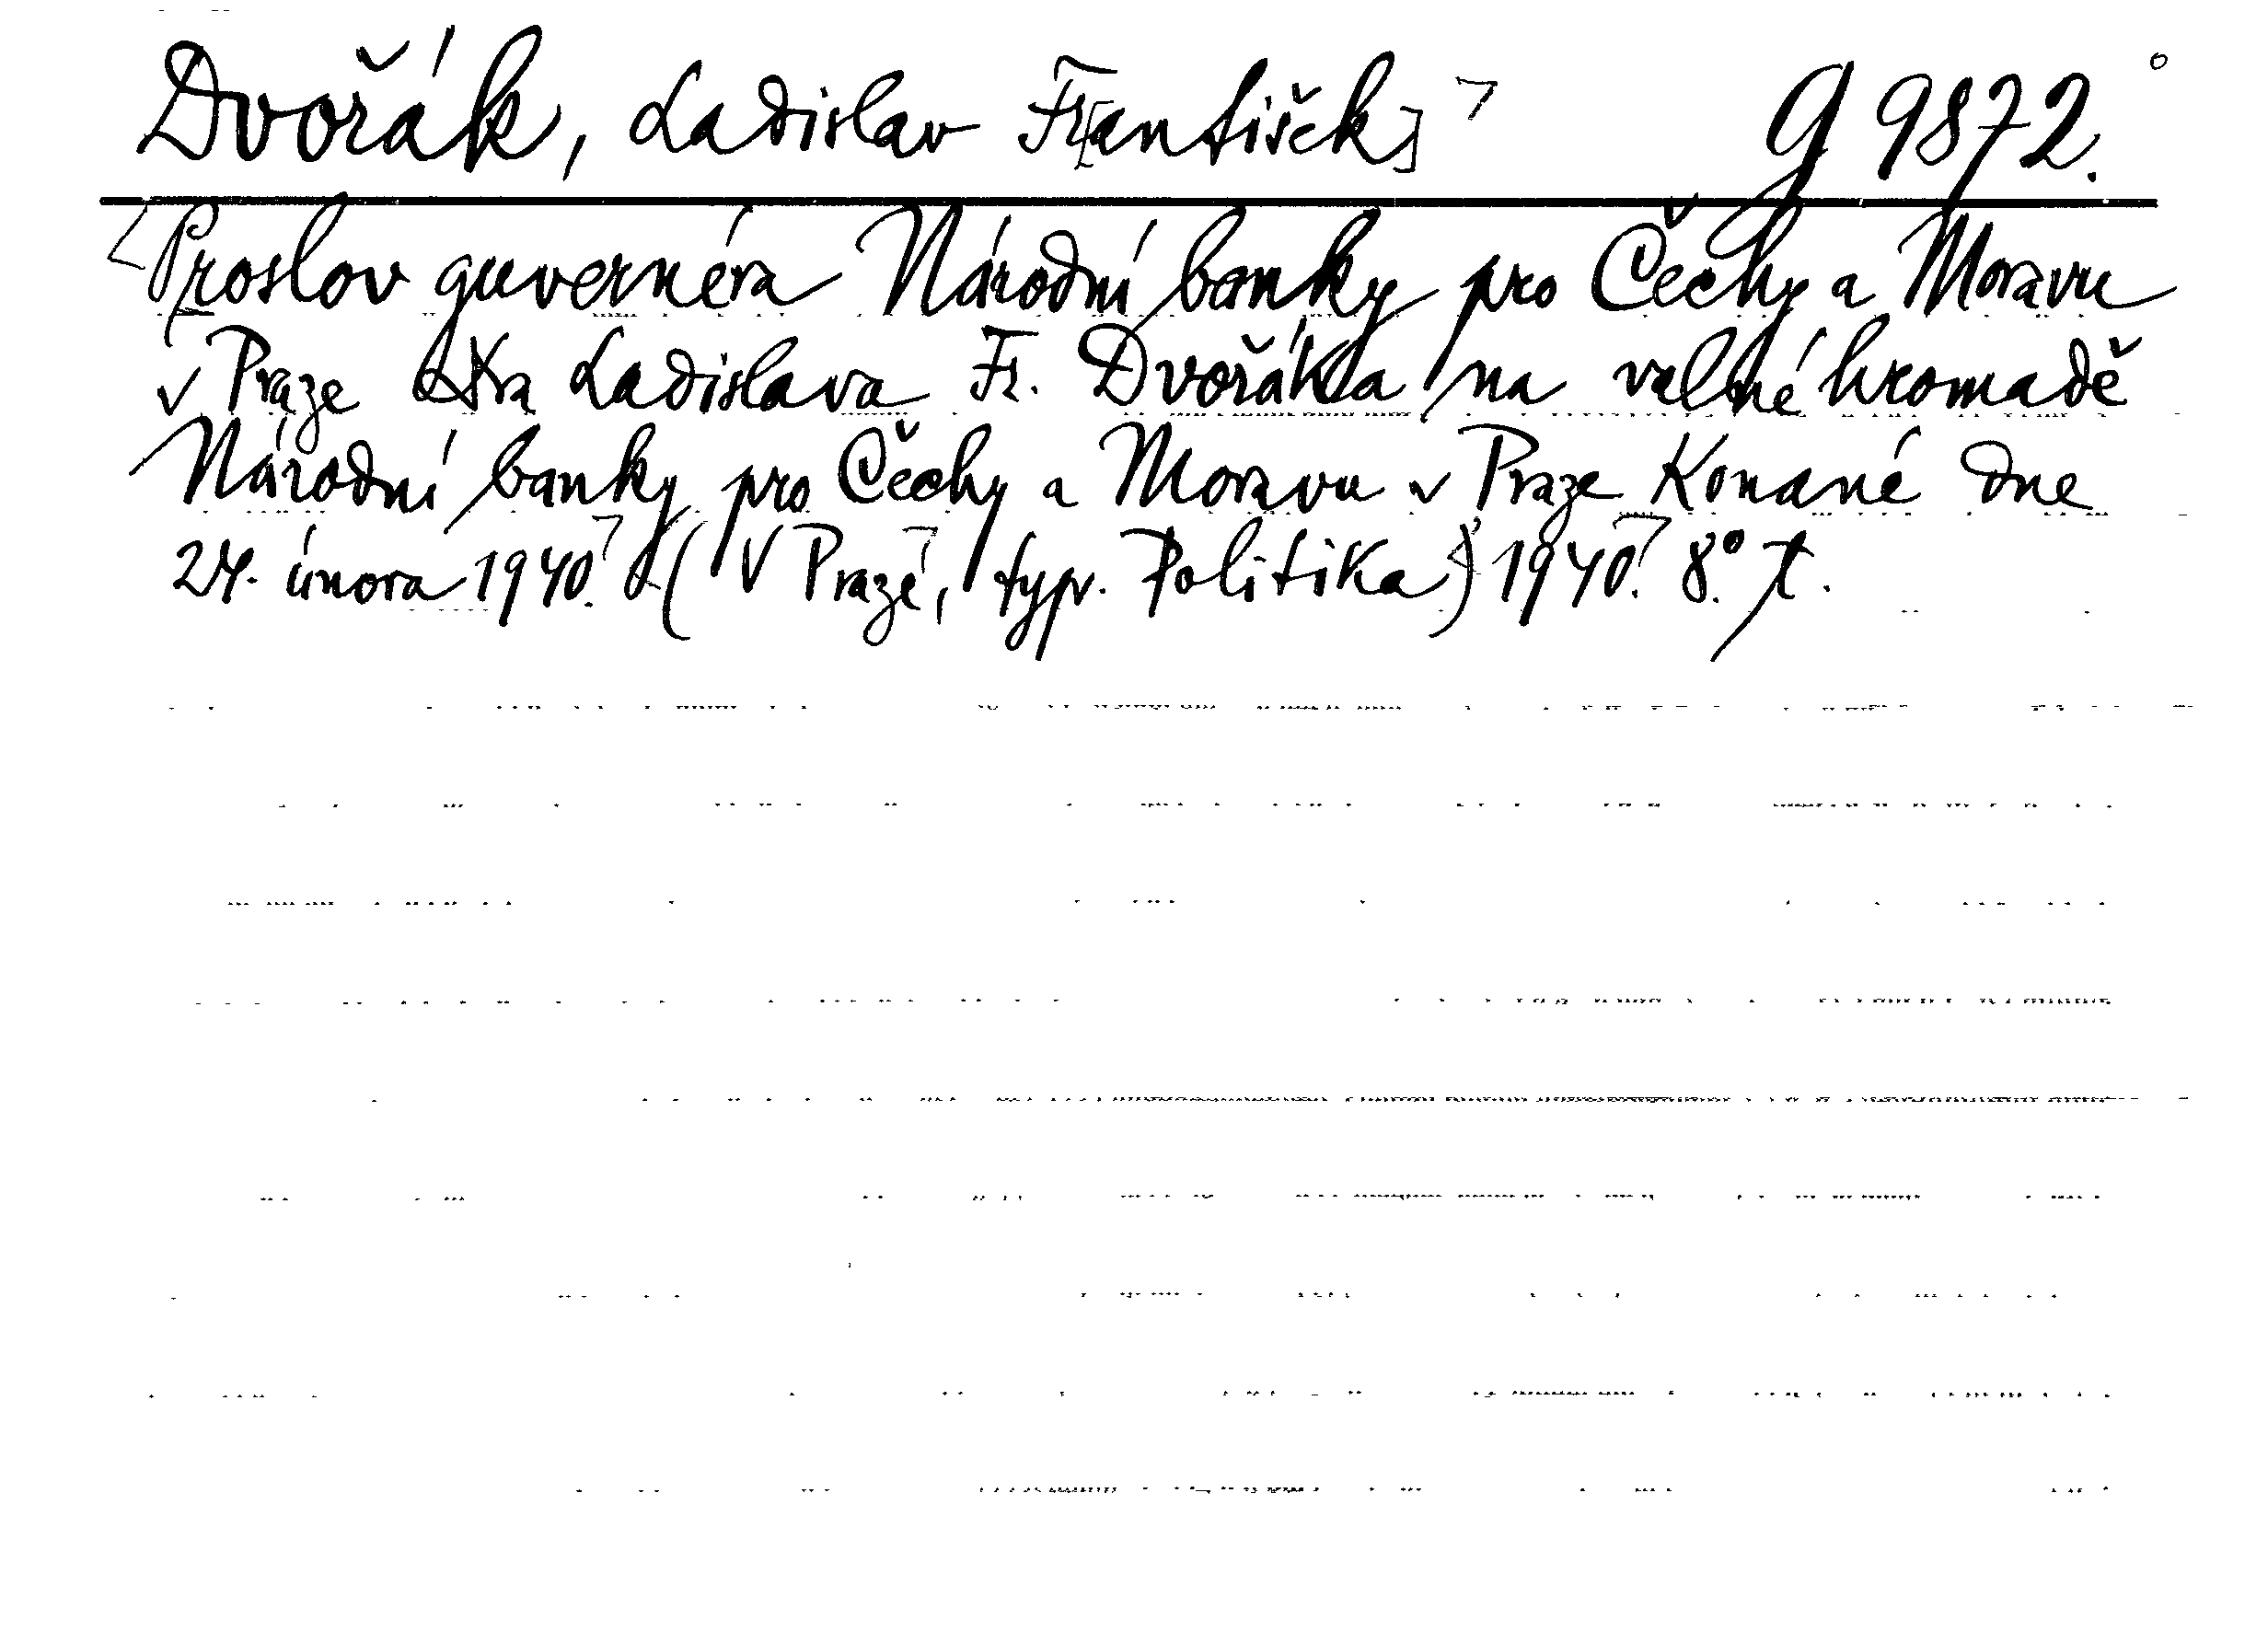 Dvořák, Ladislav Fr[antišek] g 9872.
Proslov guvernéra Národní banky pro Čechy a Moravu
v Praze Dra Ladislava Fr. Dvořáka na valné hromadě
Národní banky pro Čechy a Moravu v Praze konané dne
24. února 1940. (V Praze, typ. Politika) 1940. 8°.